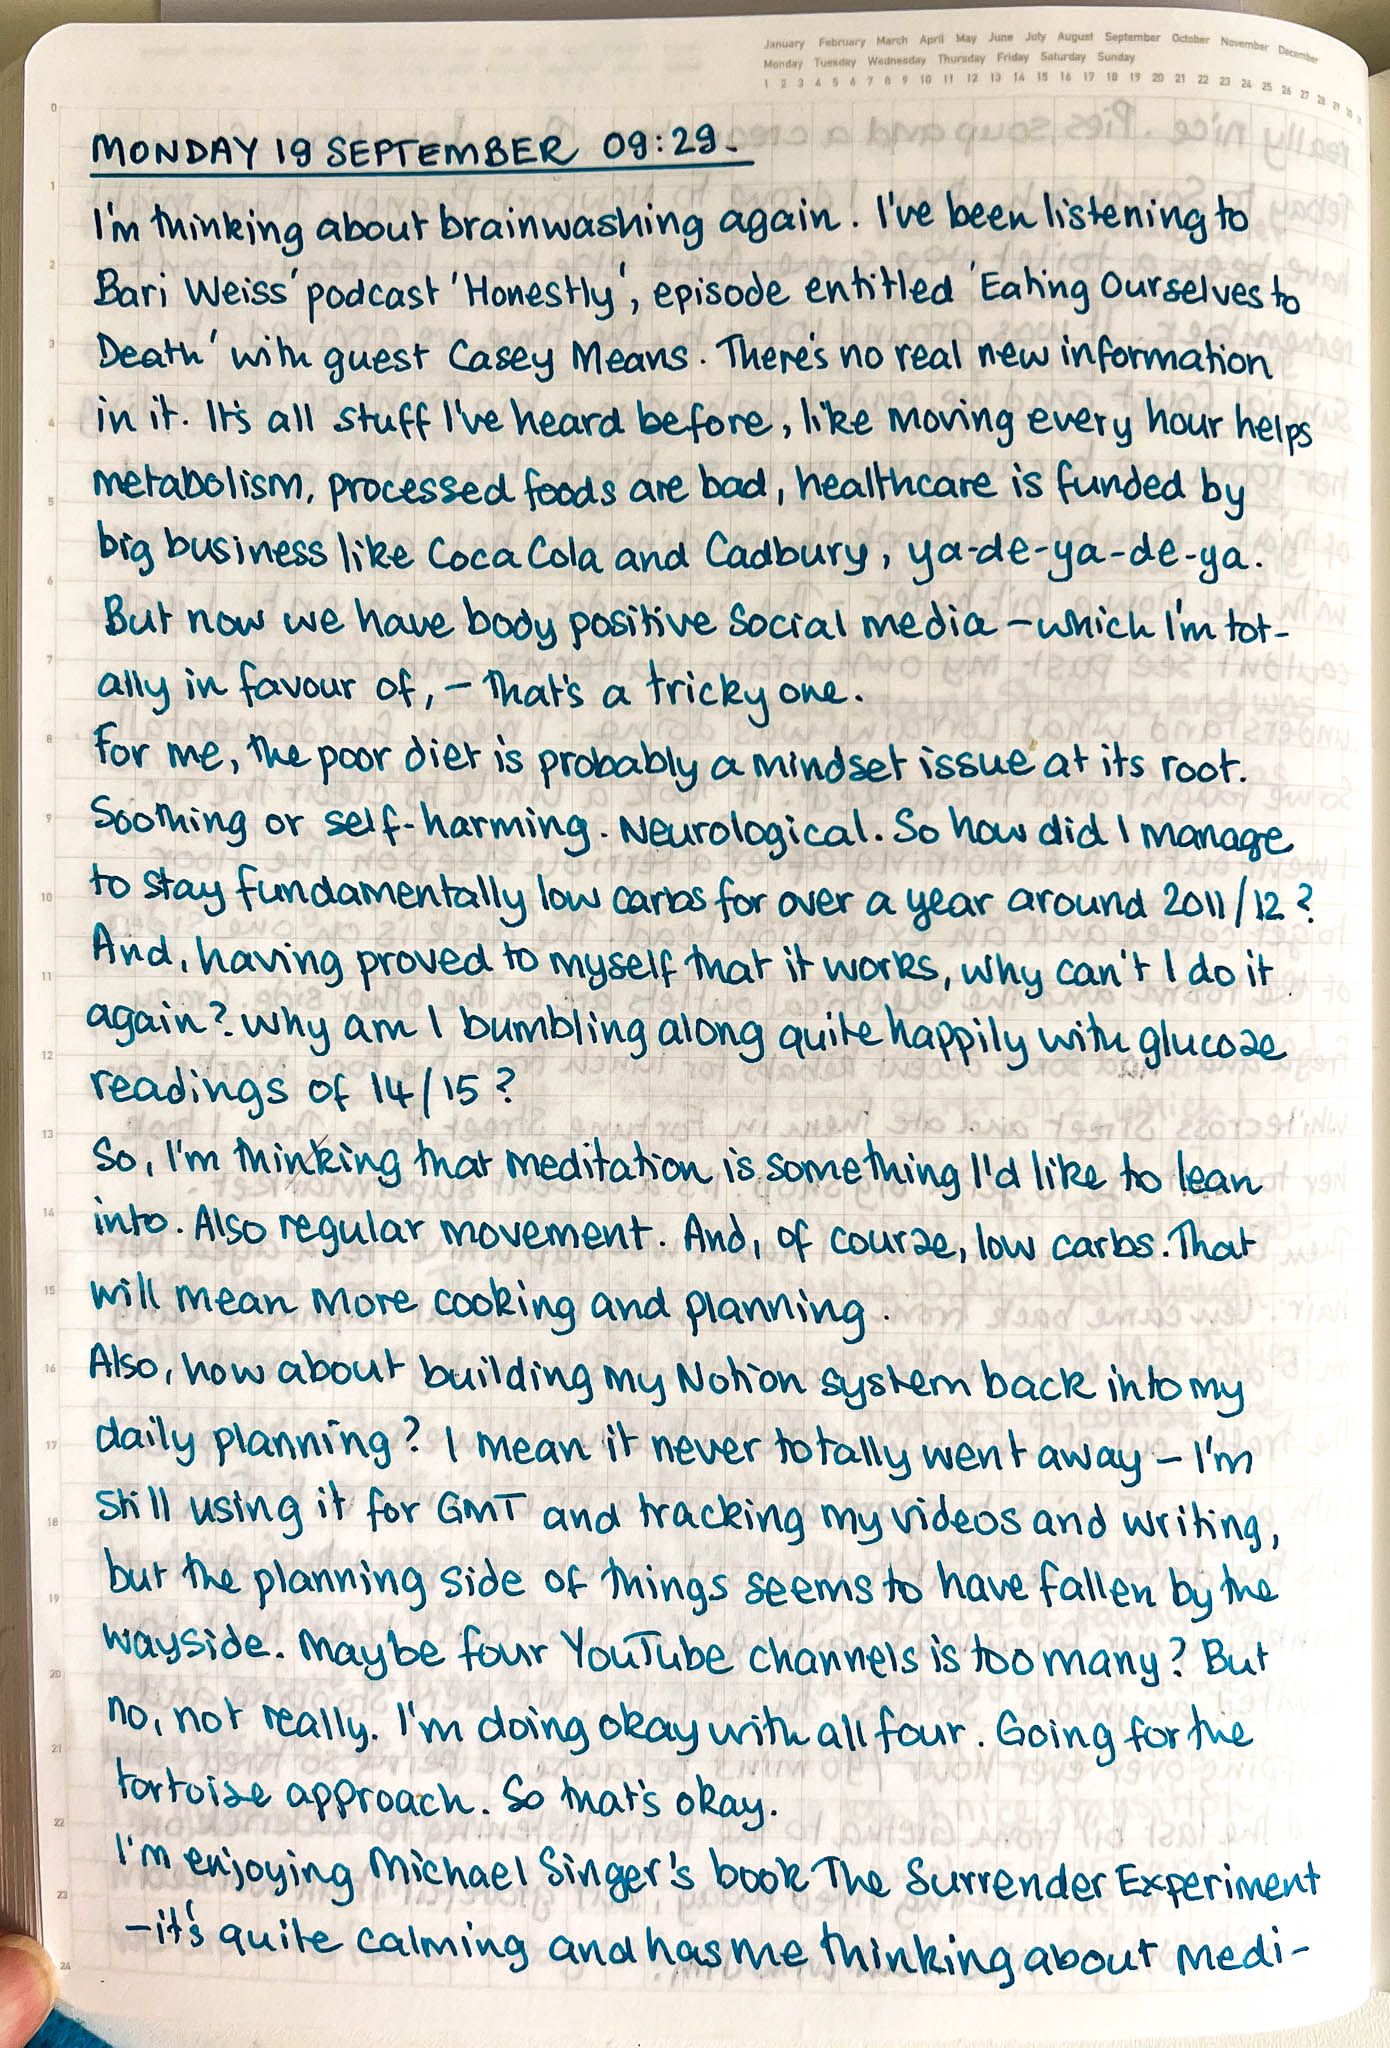 January February March April May June July August September October November December
Monday Tuesday Wednesday Thursday Friday Saturday Sunday
1 2 3 4 5 6 7 8 9 10 11 12 13 14 15 16 17 18 19 20 21 22 23 24 25 26 27 28 29 30 31
MONDAY 19 SEPTEMBER 09:29.
I'm thinking about brainwashing again. I've been listening to
Bari Weiss' podcast 'Honestly', episode entitled 'Eating Ourselves to
Death' with guest Casey Means. There's no real new information
in it. It's all stuff I've heard before, like moving every hour helps
metabolism, processed foods are bad, healthcare is funded by
big business like Coca Cola and Cadbury, ya-de-ya-de-ya.
But now we have body positive social media – which I'm tot-
ally in favour of, – that's a tricky one.
For me, the poor diet is probably a mindset issue at its root.
Soothing or self-harming. Neurological. So how did I manage
to stay fundamentally low carbs for over a year around 2011/12?
And, having proved to myself that it works, why can't I do it
again? Why am I bumbling along quite happily with glucose
readings of 14/15?
So, I'm thinking that meditation is something I'd like to lean
into. Also regular movement. And, of course, low carbs. That
will mean more cooking and planning.
Also, how about building my Notion system back into my
daily planning? I mean it never totally went away – I'm
still using it for GMT and tracking my videos and writing,
but the planning side of things seems to have fallen by the
wayside. Maybe four YouTube channels is too many? But
no, not really. I'm doing okay with all four. Going for the
tortoise approach. So that's okay.
I'm enjoying Michael Singer's book The Surrender Experiment
– it's quite calming and has me thinking about medi-
0
1
2
3
4
5
6
7
8
9
10
11
12
13
14
15
16
17
18
19
20
21
22
23
24